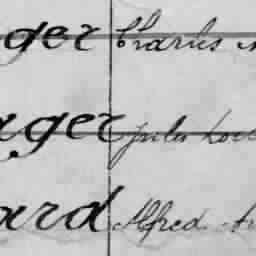 ger Charles
ager Jules
ard Alfred